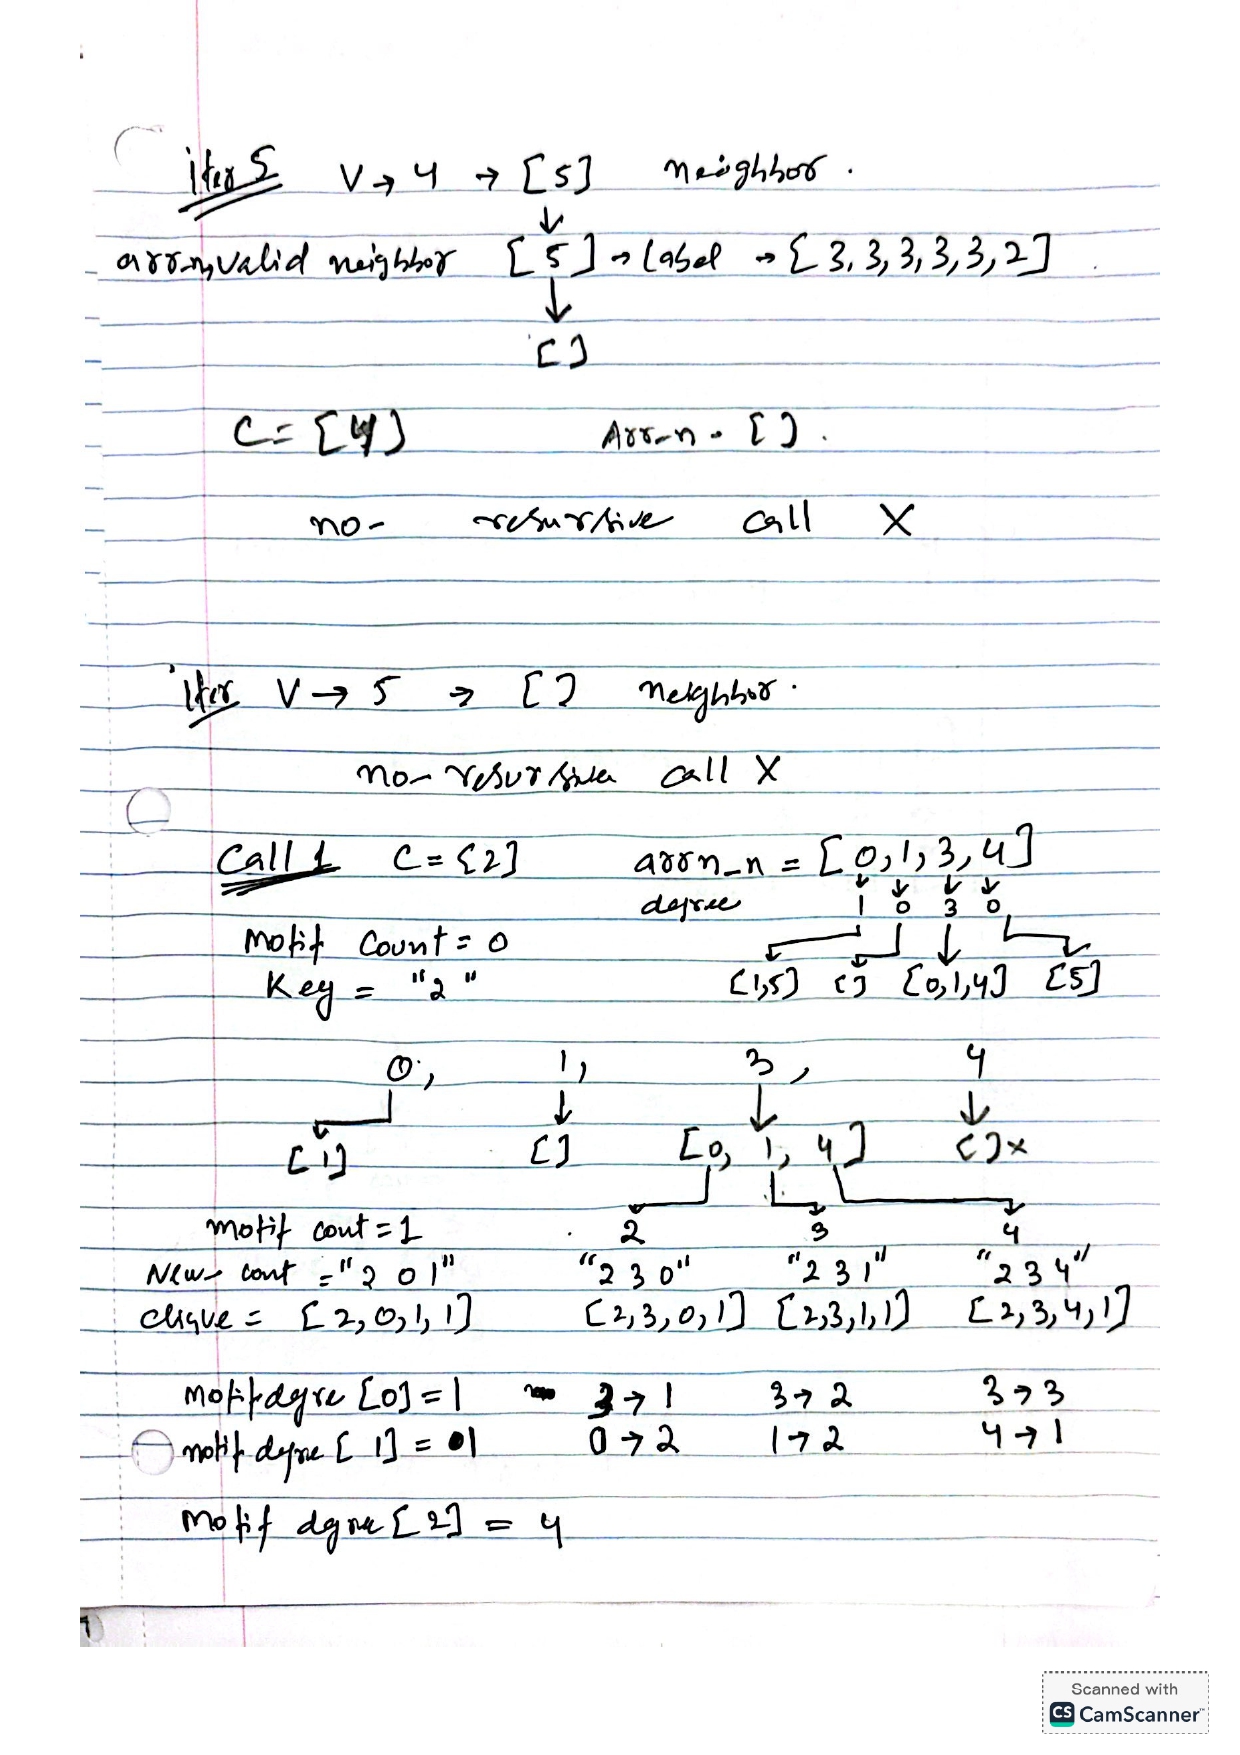 iter 5 V → 4 → [5] neighbor.
arr_n, valid neighbor [5] → label → [3, 3, 3, 3, 3, 2]
[ ]
C = [4] Arr_n = [ ].
no- resursive call X
iter V → 5 → [ ] neighbor.
no- resursive call X
Call 1 C = {2] arrn_n = [0, 1, 3, 4]
degree 1 0 3 0
Motif Count = 0
Key = "2" [1,5] [ ] [0,1,4] [5]
0, 1, 3, 4
[1] [ ] [0, 1, 4] [ ] x
motif cont = 1 2 3 4
New cont = "2 0 1" "2 3 0" "2 3 1" "2 3 4"
clique = [2, 0, 1, 1] [2, 3, 0, 1] [2,3,1,1] [2,3,4,1]
Motif dgre [0] = 1 3 → 1 3 → 2 3 → 3
motif dgre [1] = 1 0 → 2 1 → 2 4 → 1
Motif dgre [2] = 4
Scanned with
CS CamScanner